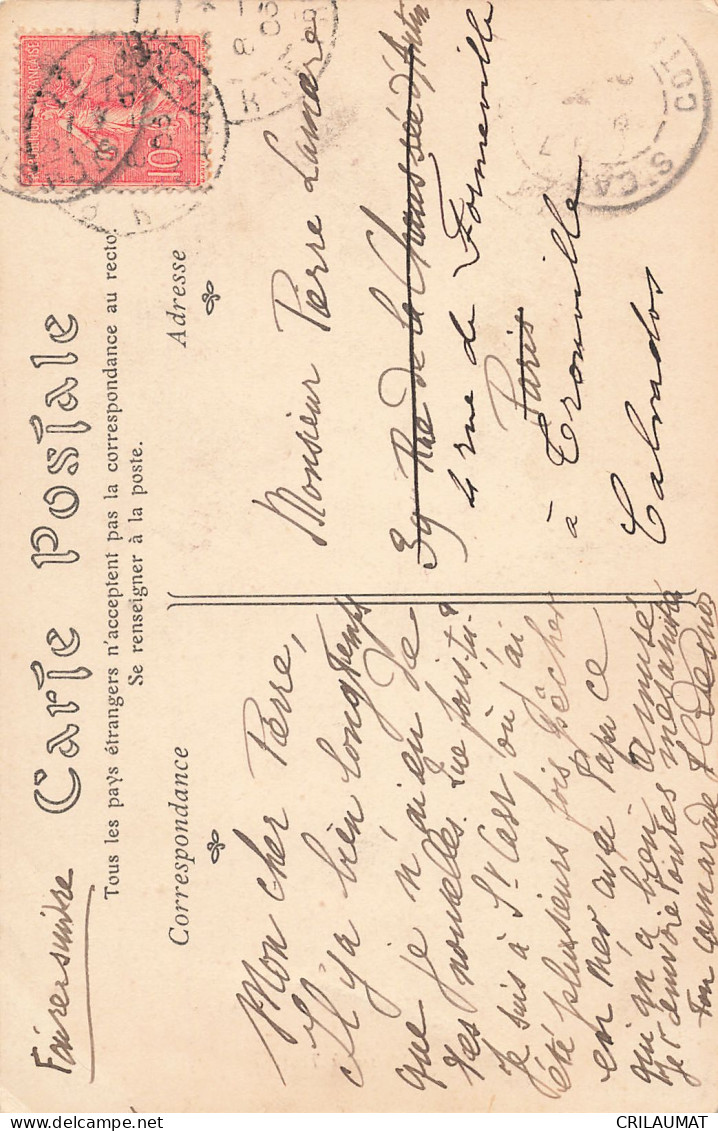 Faire suivre
Carte Postale
Tous les pays étrangers n'acceptent pas la correspondance au recto.
Se renseigner à la poste.
Correspondance
Mon cher Pierre,
Il y a bien longtemps
que je n'ai eu de
tes nouvelles. Que fais tu.
Je suis à St Cast où j'ai
été plusieurs fois pêcher
en mer avec Papa ce
qui m'a bien amusé
Je t'envoie toutes mes amitiés
Ton camarade
Adresse
Monsieur Pierre Lamare
39 Rue de la Chaussée d'Antin
4 rue de Formeville
Paris
à Trouville
Calvados
10
ST CAST
COT
CRILAUMAT